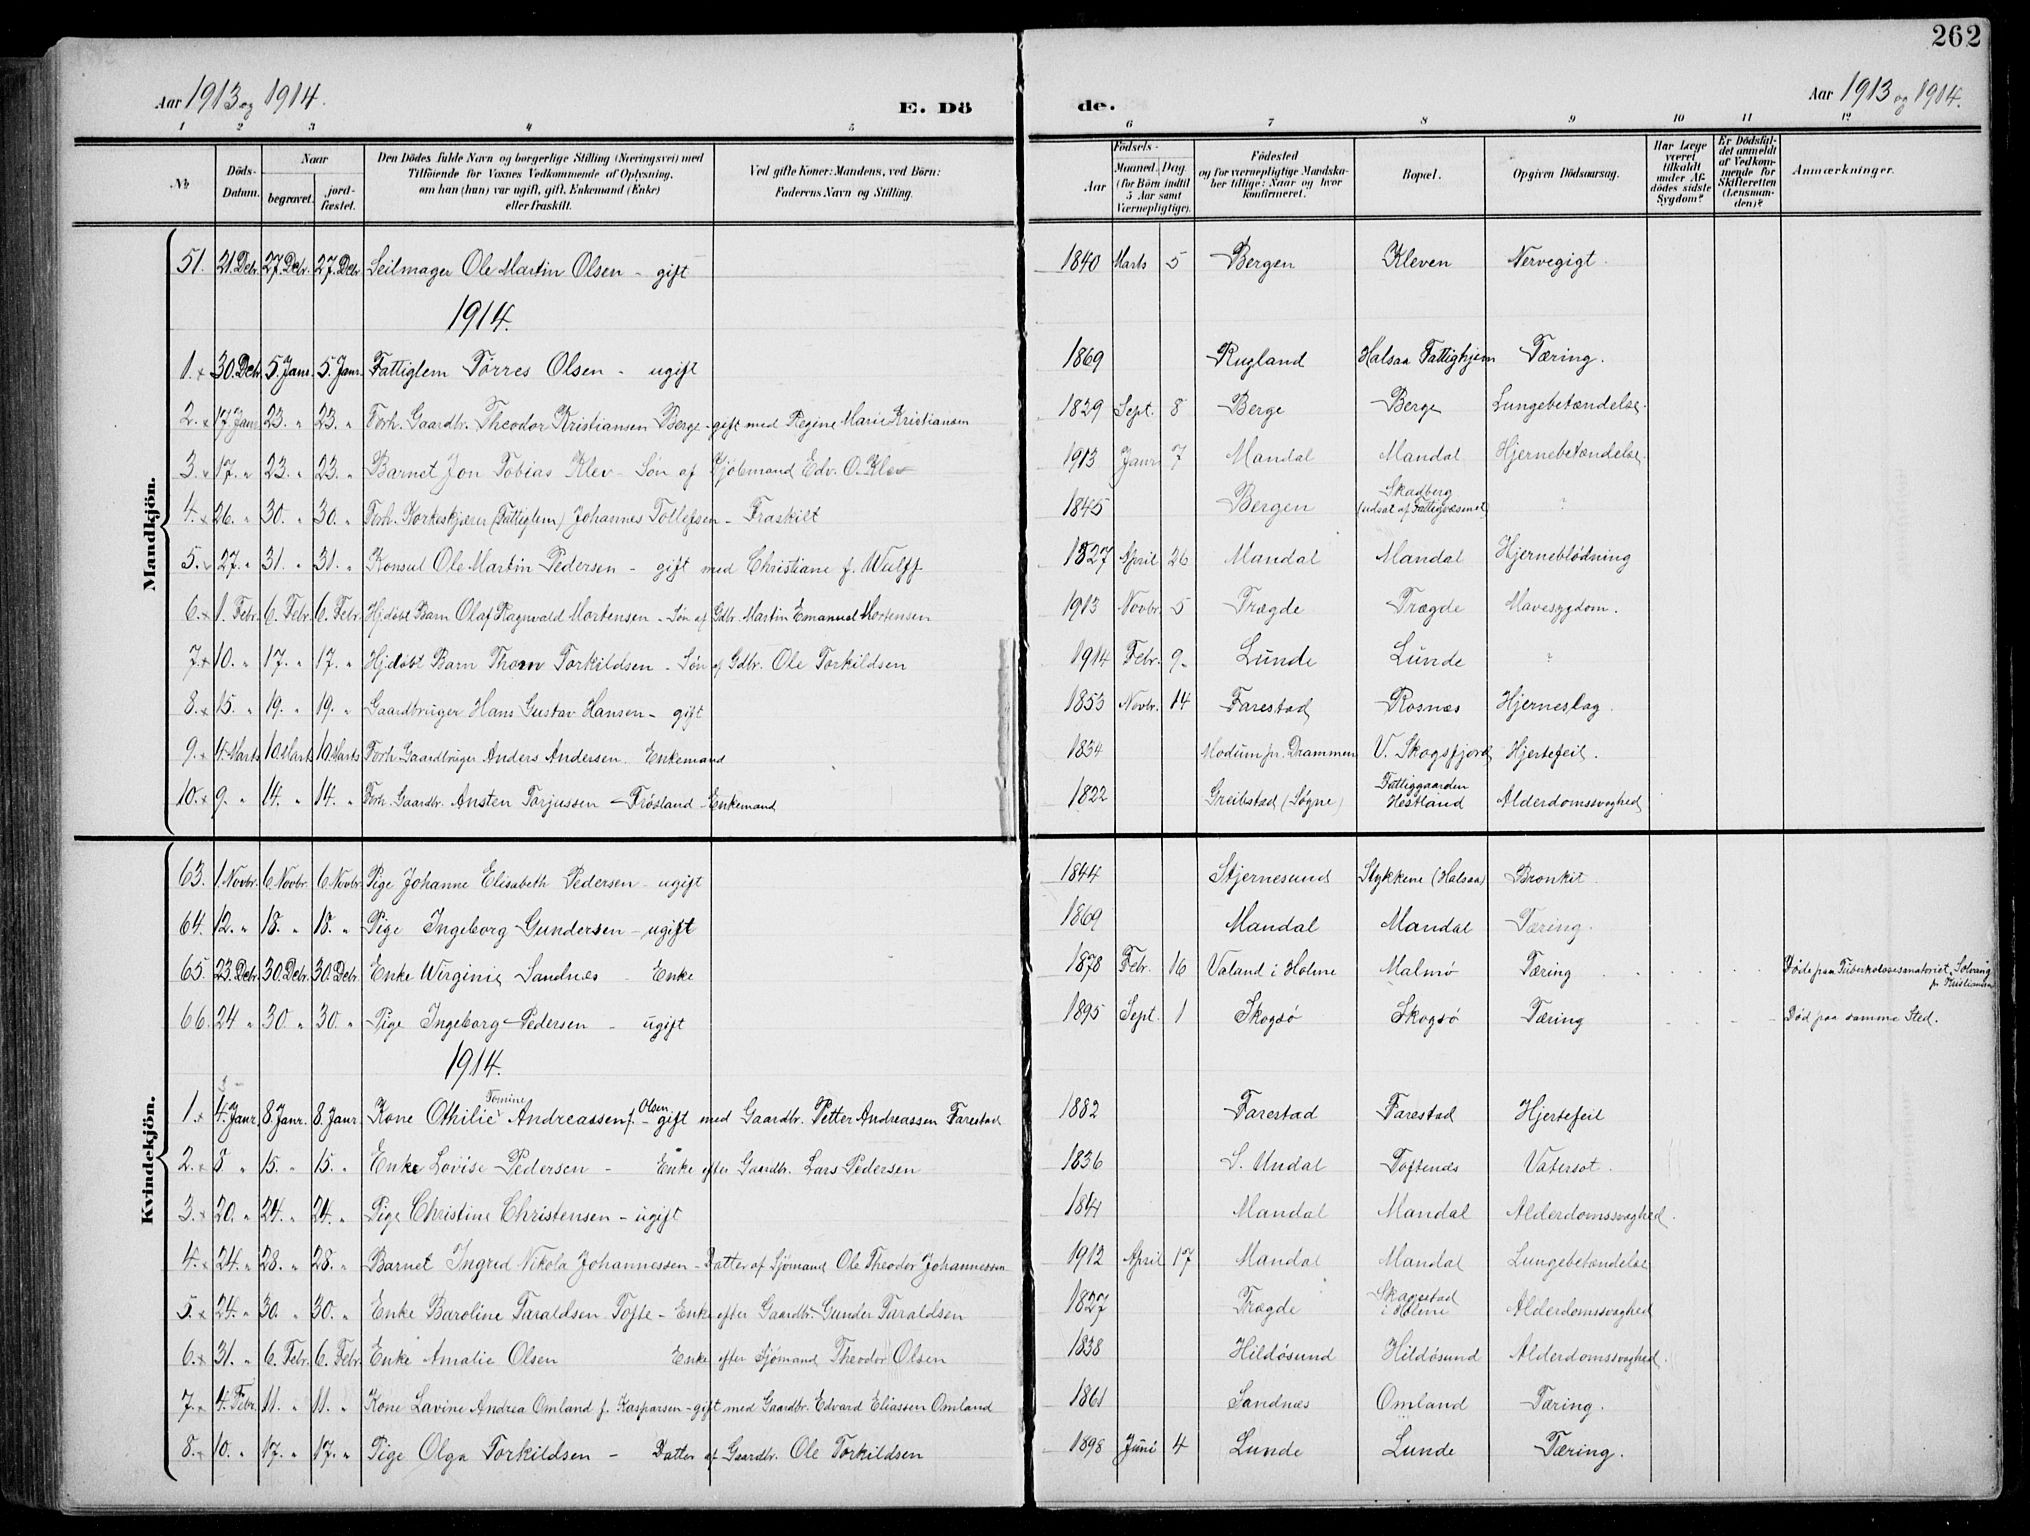 262
Aar 1913 og 1914.
E. Dö
de.
Aar 1913 og 1914.
1 2 3 4 5 6 7 8 9 10 11 12
№
Döds-Datum.
Naar
begravet.
jord-fæstet.
Den Dödes fulde Navn og borgerlige Stilling (Næringsvei) med
Tilföiende for Voxnes Vedkommende af Oplysning,
om han (hun) var ugift, gift, Enkemand (Enke)
eller fraskilt.
Ved gifte Koner: Mandens, ved Börn:
Faderens Navn og Stilling.
Födsels-
Aar
Maaned. Dag.
(for Börn indtil
5 Aar samt
Værnepligtige).
Födested
og for værnepligtige Mandska-
ber tillige: Naar og hvor
konfirmeret.
Bopæl.
Opgiven Dödsaarsag.
Har Læge
været
tilkaldt
under Af-
dödes sidste
Sygdom?
Er Dödsfal-
det anmeldt
af Vedkom-
mende for
Skifteretten
(Lensman-
den)?
Anmærkninger.
Mandkjön.
51. 21. Debr. 27. Debr. 27. Debr Seilmager Ole Martin Olsen - gift 1840 Marts 5 Bergen Kleven Nervegigt.
1914.
1. 30. Debr. 5. Janr. 5. Janr. Fattiglem Torres Olsen - ugift 1869 Rugland Halsaa Fattighjem Tæring.
2. 17 Janr 23. " 23. " Forh. Gaardbr. Theodor Kristiansen Berge - gift med Regine Marie Kristiansen 1829 Sept. 8 Berge Berge Lungebetændelse.
3. 17. " 23. " 23. " Barnet Jon Tobias Klev - Søn af Kjøbmand Edv. O. Klev 1913 Janr 7 Mandal Mandal Hjernebetændelse.
4. 26. " 30. " 30. " Forh. Korkeskjærer (Fattiglem) Johannes Tollefsen - Fraskilt 1845 Bergen Skadberg (udsat af Fattigvæsenet) ?
5. 27. " 31. " 31. " Konsul Ole Martin Pedersen - gift med Christiane f. Wulff 1827 April 26 Mandal Mandal Hjerneblødning
6. 1. Febr. 6. Febr. 6. Febr. Hjdøbt Barn Olaf Ragnvald Mortensen - Søn af Gdbr. Martin Emanuel Mortensen 1913 Novbr. 5 Trægde Trægde Mavesygdom.
7. 10. " 17. " 17. " Hjdøbt Barn Thorv Torkildsen - Søn af Gdbr. Ole Torkildsen 1914 Febr. 9. Lunde Lunde ?
8. 15. " 19. " 19. " Gaardbruger Hans Gustav Hansen - gift 1853 Novbr. 14 Farestad Rosnæs Hjerneslag.
9. 4. Marts 10. Marts 10. Marts Forh. Gaardbruger Anders Andersen Enkemand 1834 Modum pr. Drammen V. Skogsfjord Hjertefeil.
10. 9. " 14. " 14. " Forh. Gaardbr. Ansten Torjussen Frøsland - Enkemand 1822 Greibstad (Søgne) Fattiggaarden Hestland Alderdomssvaghed
Kvindekjön.
63. 1. Novbr. 6. Novbr. 6. Novbr. Pige Johanne Elisabeth Pedersen - ugift 1844 Stjernesund Stykkene (Halsaa) Bronkit.
64. 12. " 18. " 18. " Pige Ingeborg Gundersen - ugift 1869 Mandal Mandal Tæring.
65. 23. Debr. 30. Debr. 30. Debr. Enke Wirginie Sandnæs - Enke 1878 Febr. 16 Valand i Holme Malmø Tæring Døde paa Tuberkulosesanatoriet Solvang pr. Kristiansa
66. 24 " 30. " 30. " Pige Ingeborg Pedersen - ugift 1895 Sept. 1 Skogsø Skogsø Tæring Død paa samme Sted.
1914.
1. 4. Janr. 8. Janr. 8. Janr. Kone Othilie Tomine Andreassen f. Olsen - gift med Gaardbr. Petter Andreassen Farestad 1882 Farestad Farestad Hjertefeil
2. 8 " 15. " 15. " Enke Lovise Pedersen - Enke efter Gaardbr. Lars Pedersen 1836 S. Undal Toftenæs Vatersot.
3. 20. " 24. " 24. " Pige Christine Christensen - ugift 1841 Mandal Mandal Alderdomssvaghed.
4. 24. " 28. " 28. " Barnet Ingred Nikola Johannessen - Datter af Sjømand Ole Theodor Johannessen 1912 April 17 Mandal Mandal Lungebetændelse
5. 24. " 30. " 30. " Enke Baroline Taraldsen Tofte - Enke efter Gaardbr. Gunder Taraldsen 1827 Trægde Skagestad i Holme Alderdomssvaghed
6. 31. " 6. Febr. 6. Febr. Enke Amalie Olsen Enke efter Sjømand Theodor Olsen 1838 Hildøsund Hildøsund Alderdomssvaghed.
7. 4. Febr. 11. " 11. " Kone Lavine Andrea Omland f. Kasparsen - gift med Gaardbr. Edvard Eliassen Omland 1861 Sandnæs Omland Tæring.
8. 10. " 17. " 17. " Pige Olga Torkildsen - Datter af Gaardbr. Ole Torkildsen 1898 Juni 4 Lunde Lunde Tæring.